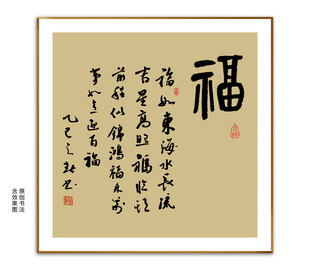 福
福如東海水長流
吉星高照福临头
前程似錦鴻福来万
事如意迎百福
乙巳之
原创书法
含效果图